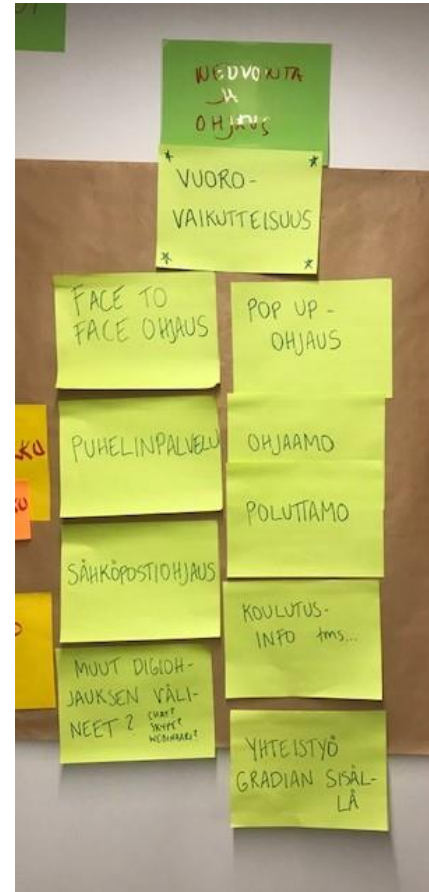 NEUVONTA
JA
OHJAUS
VUORO-
VAIKUTTEISUUS
FACE TO
FACE OHJAUS
PUHELINPALVELU
SÄHKÖPOSTIOHJAUS
MUUT DIGIOH-
JAUKSEN VÄLI-
NEET?
CHAT?
SKYPE?
WEBINAARI?
POP UP -
OHJAUS
OHJAAMO
POLUTTAMO
KOULUTUS-
INFO tms...
YHTEISTYÖ
GRADIAN SISÄL-
LÄ